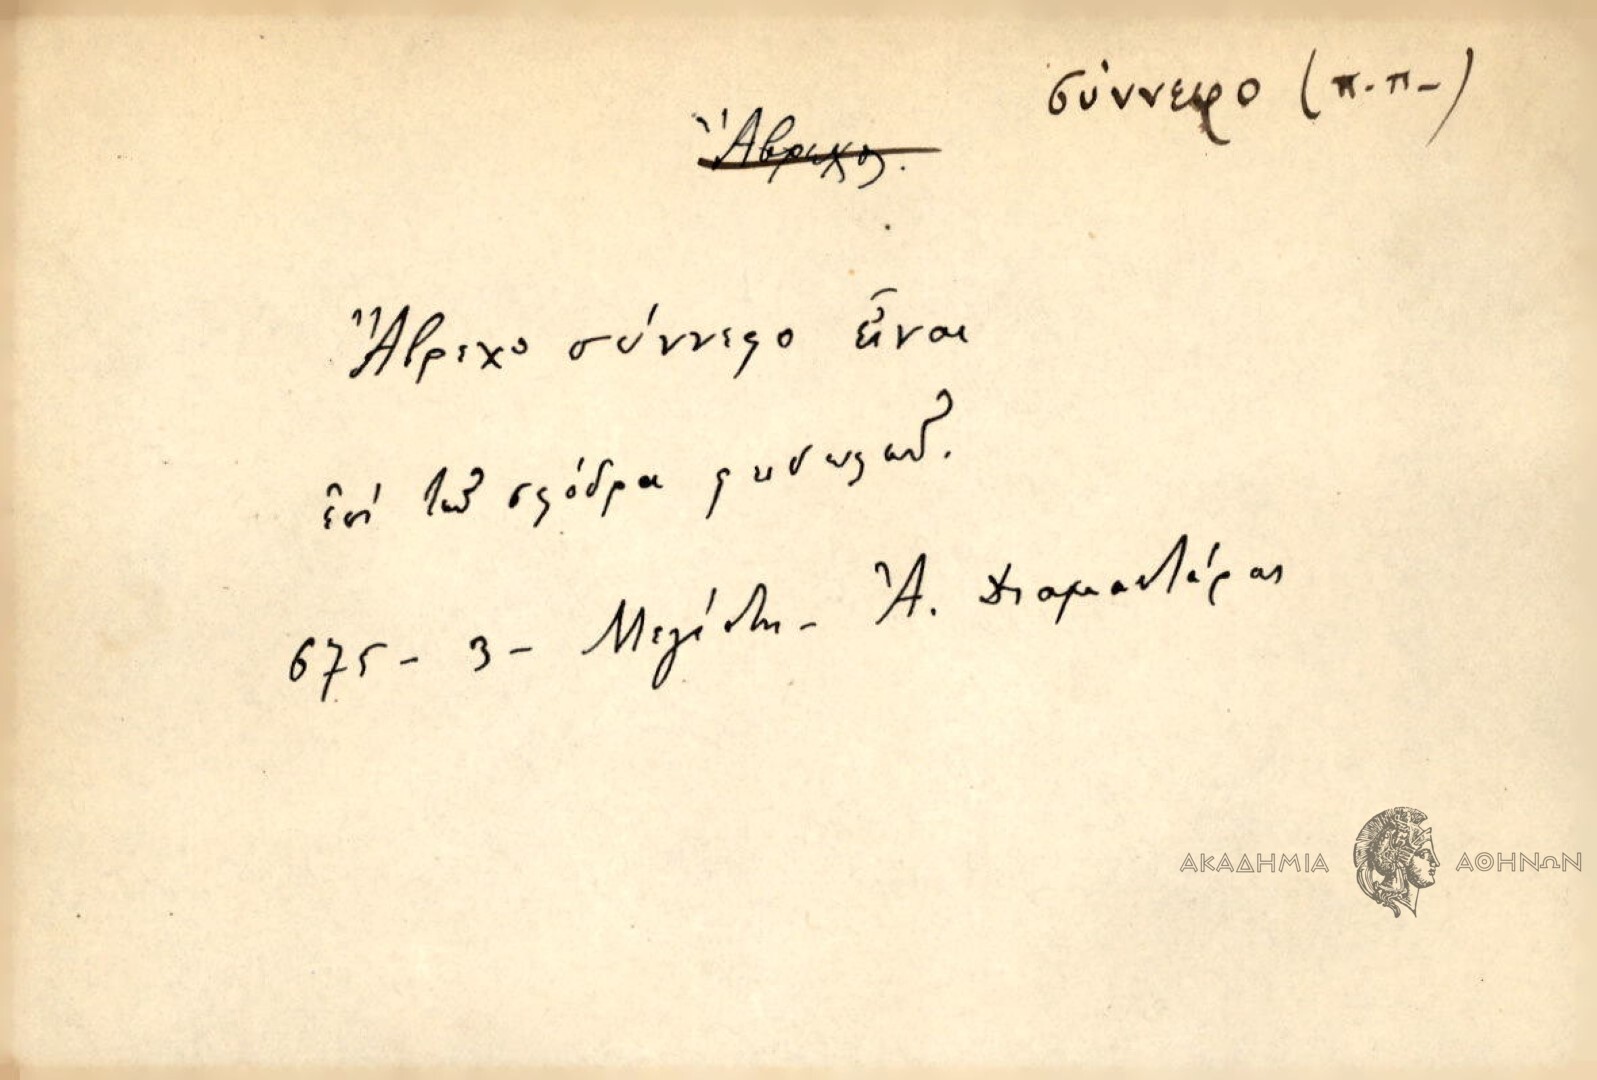 σύννεφο (π.π-)
Ἄβρεχος.
Ἄβρεχο σύννεφο εἶναι
ἐπί τῶν σφόδρα φειδωλῶν.
675 - 3 - Μεγίστη - Ἀ. Διαμαντάρας
ΑΚΑΔΗΜΙΑ ΑΘΗΝΩΝ